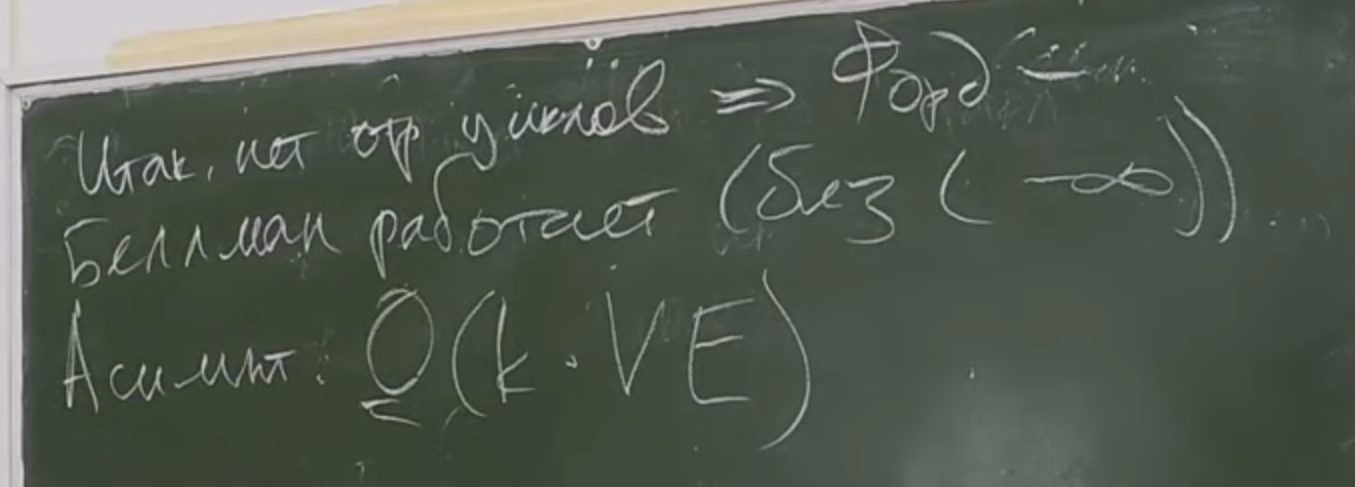 Итак, нет отр циклов => Форд –
Беллман работает (без (-∞))
Асимпт: O(k · VE)